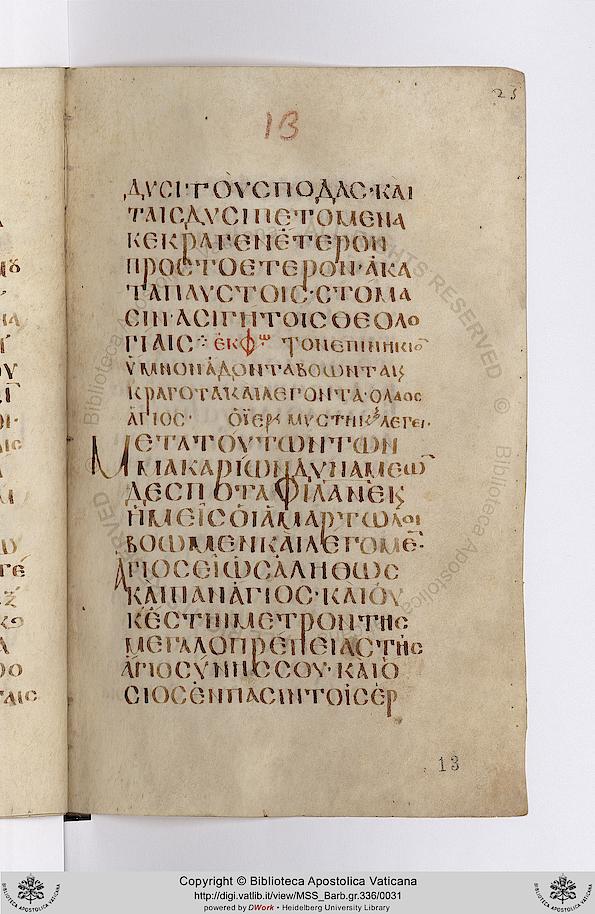 25
ΙΒ
ΔΥCΙ ΤΟΥC ΠΟΔΑC· ΚΑΙ
ΤΑΙC ΔΥCΙ ΠΕΤΟΜΕΝΑ
ΚΕΚΡΑΓΕΝ ΕΤΕΡΟΝ
ΠΡΟC ΤΟ ΕΤΕΡΟΝ· ΑΚΑ
ΤΑΠΑΥCΤΟΙC· CΤΟΜΑ
CΙΝ· ΑCΙΓΗΤΟΙC ΘΕΟΛΟ
ΓΙΑΙC: ἐΚΦ ΤΟΝ ΕΠΙΝΗΚΙΟ̅
ὙΜΝΟΝ ΑΔΟΝΤΑ ΒΟΩΝΤΑ Κ
ΚΡΑΓΟΤΑ ΚΑΙ ΛΕΓΟΝΤΑ· Ο ΛΑΟC
ἍΓΙΟC· Ὁ ΪΕΡ ΜΥCΤΗΚ ΛΕΓΕΙ·
ΜΕΤΑ ΤΟΥΤΩΝ ΤΩΝ
ΜΑΚΑΡΙΩΝ ΔΥΝΑΜΕΩ̅
ΔΕCΠΟΤΑ ΦΙΛΑΝΕ Κ
ἩΜΕΙC ΟΙ ΑΜΑΡΤΩΛΟΙ
ΒΟΩΜΕΝ ΚΑΙ ΛΕΓΟΜΕ̅·
ἍΓΙΟC ΕΙ ὩC ΑΛΗΘΩC
ΚΑΙ ΠΑΝΑΓΙΟC· ΚΑΙ ΟΥ
Κ ἘCΤΗΙ ΜΕΤΡΟΝ ΤΗC
ΜΕΓΑΛΟΠΡΕΠΕΙΑC ΤΗC
ἉΓΙΟCΥΝΗC CΟΥ· ΚΑΙ Ο
CΙΟC ἘΝ ΠΑCΙΝ ΤΟΙC ΕΡ
13
Copyright © Biblioteca Apostolica Vaticana
http://digi.vatlib.it/view/MSS_Barb.gr.336/0031
powered by DWork • Heidelberg University Library